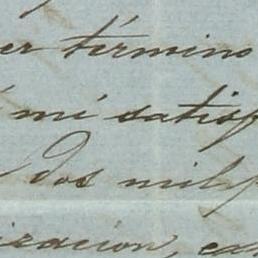 er término
mi satisf
dos mil
zación, ca